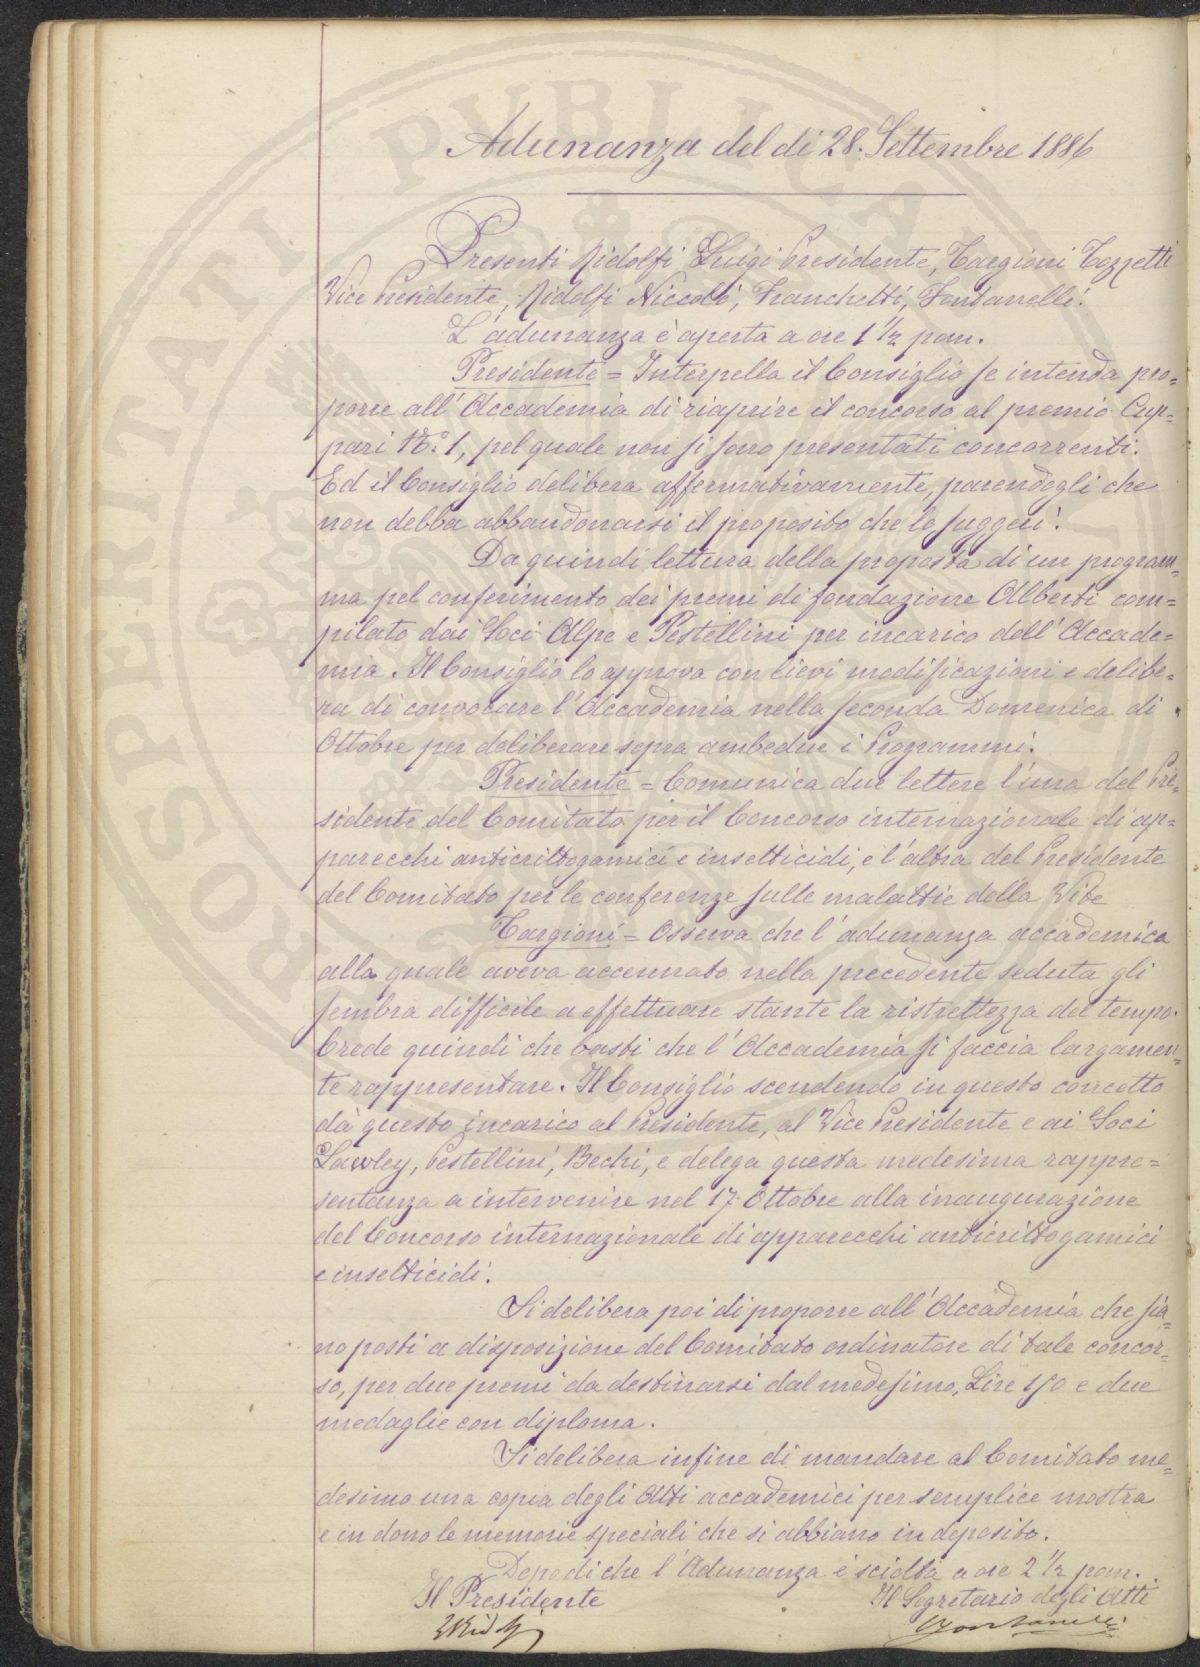 Adunanza del di 28. Settembre 1886
Presenti Ridolfi Luigi Presidente, Targioni Tozzetti
Vice Presidente, Ridolfi Niccolò, Franchetti, Fontanelli.
L'adunanza è aperta a ore 1 ½ pom.
Presidente = Interpella il Consiglio se intenda pro=
porre all'Accademia di riaprire il concorso al premio Cup=
pari N.º 1, pel quale non si sono presentati concorrenti.
Ed il Consiglio delibera affermativamente, parendogli che
non debba abbandonarsi il proposito che lo suggerì.
Da quindi lettura della proposta di un program=
ma pel conferimento dei premi di fondazione Alberti com=
pilato dai Soci Alpe e Pestellini per incarico dell'Accade=
mia. Il Consiglio lo approva con lievi modificazioni e delibe=
ra di convocare l'Accademia nella seconda Domenica di
Ottobre per deliberare sopra ambedue i Programmi.
Presidente = Comunica due lettere l'una del Pre=
sidente del Comitato per il Concorso internazionale di ap=
parecchi anticrittogamici e insetticidi, e l'altra del Presidente
del Comitato per le conferenze sulle malattie della Vite
Targioni = Osserva che l'adunanza accademica
alla quale aveva accennato nella precedente seduta gli
sembra difficile a effettuare stante la ristrettezza del tempo.
Crede quindi che basti che l'Accademia si faccia largamen=
te rappresentare. Il Consiglio scendendo in questo concetto
dà questo incarico al Presidente, al Vice Presidente e ai Soci
Lawley, Pestellini, Bechi, e delega questa medesima rappre=
sentanza a intervenire nel 17. Ottobre alla inaugurazione
del Concorso internazionale di apparecchi anticrittogamici
e insetticidi.
Si delibera poi di proporre all'Accademia che sia=
no posti a disposizione del Comitato ordinatore di tale concor=
so, per due premi da destinarsi dal medesimo, Lire 150 e due
medaglie con diploma.
Si delibera infine di mandare al Comitato me=
desimo una copia degli Atti accademici per semplice mostra
e in dono le memorie speciali che si abbiano in deposito.
Dopodiche l'Adunanza è sciolta a ore 2 ½ pom.
Il Presidente Il Segretario degli Atti
LRidolfi CFontanelli
PROSPERITATI PVBLICAE